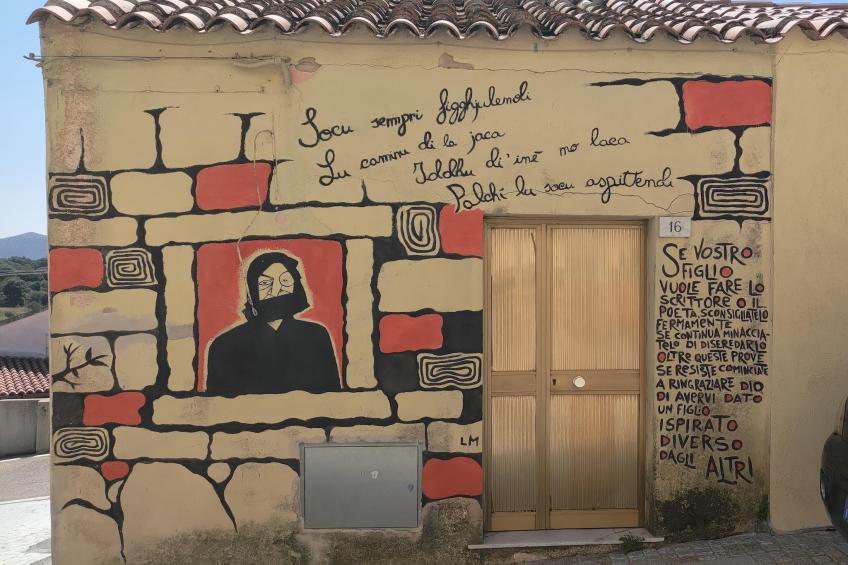 Socu sempri figghjulendi
Lu caminu di la jaca
Iddhu di'inè no laca
Palchì lu socu aspittendi
16
SE VOSTRO
FIGLIO
VUOLE FARE LO
SCRITTORE O IL
POETA SCONSIGLIATELO
FERMAMENTE
SE CONTINUA MINACCIA-
TELO DI DISEREDARLO
OLTRE QUESTE PROVE
SE RESISTE COMINCIATE
A RINGRAZIARE DIO
DI AVERVI DATO
UN FIGLIO
ISPIRATO
DIVERSO
DAGLI ALTRI
LM